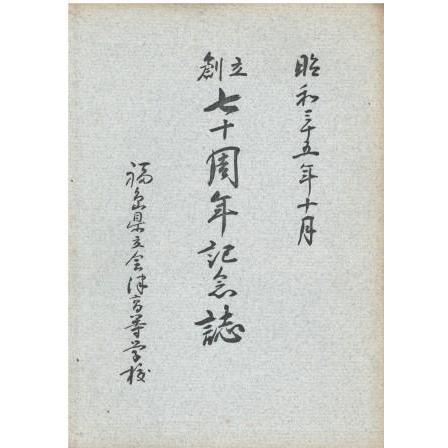 昭和三十五年十月
創立
七十周年記念誌
福島県立会津高等学校